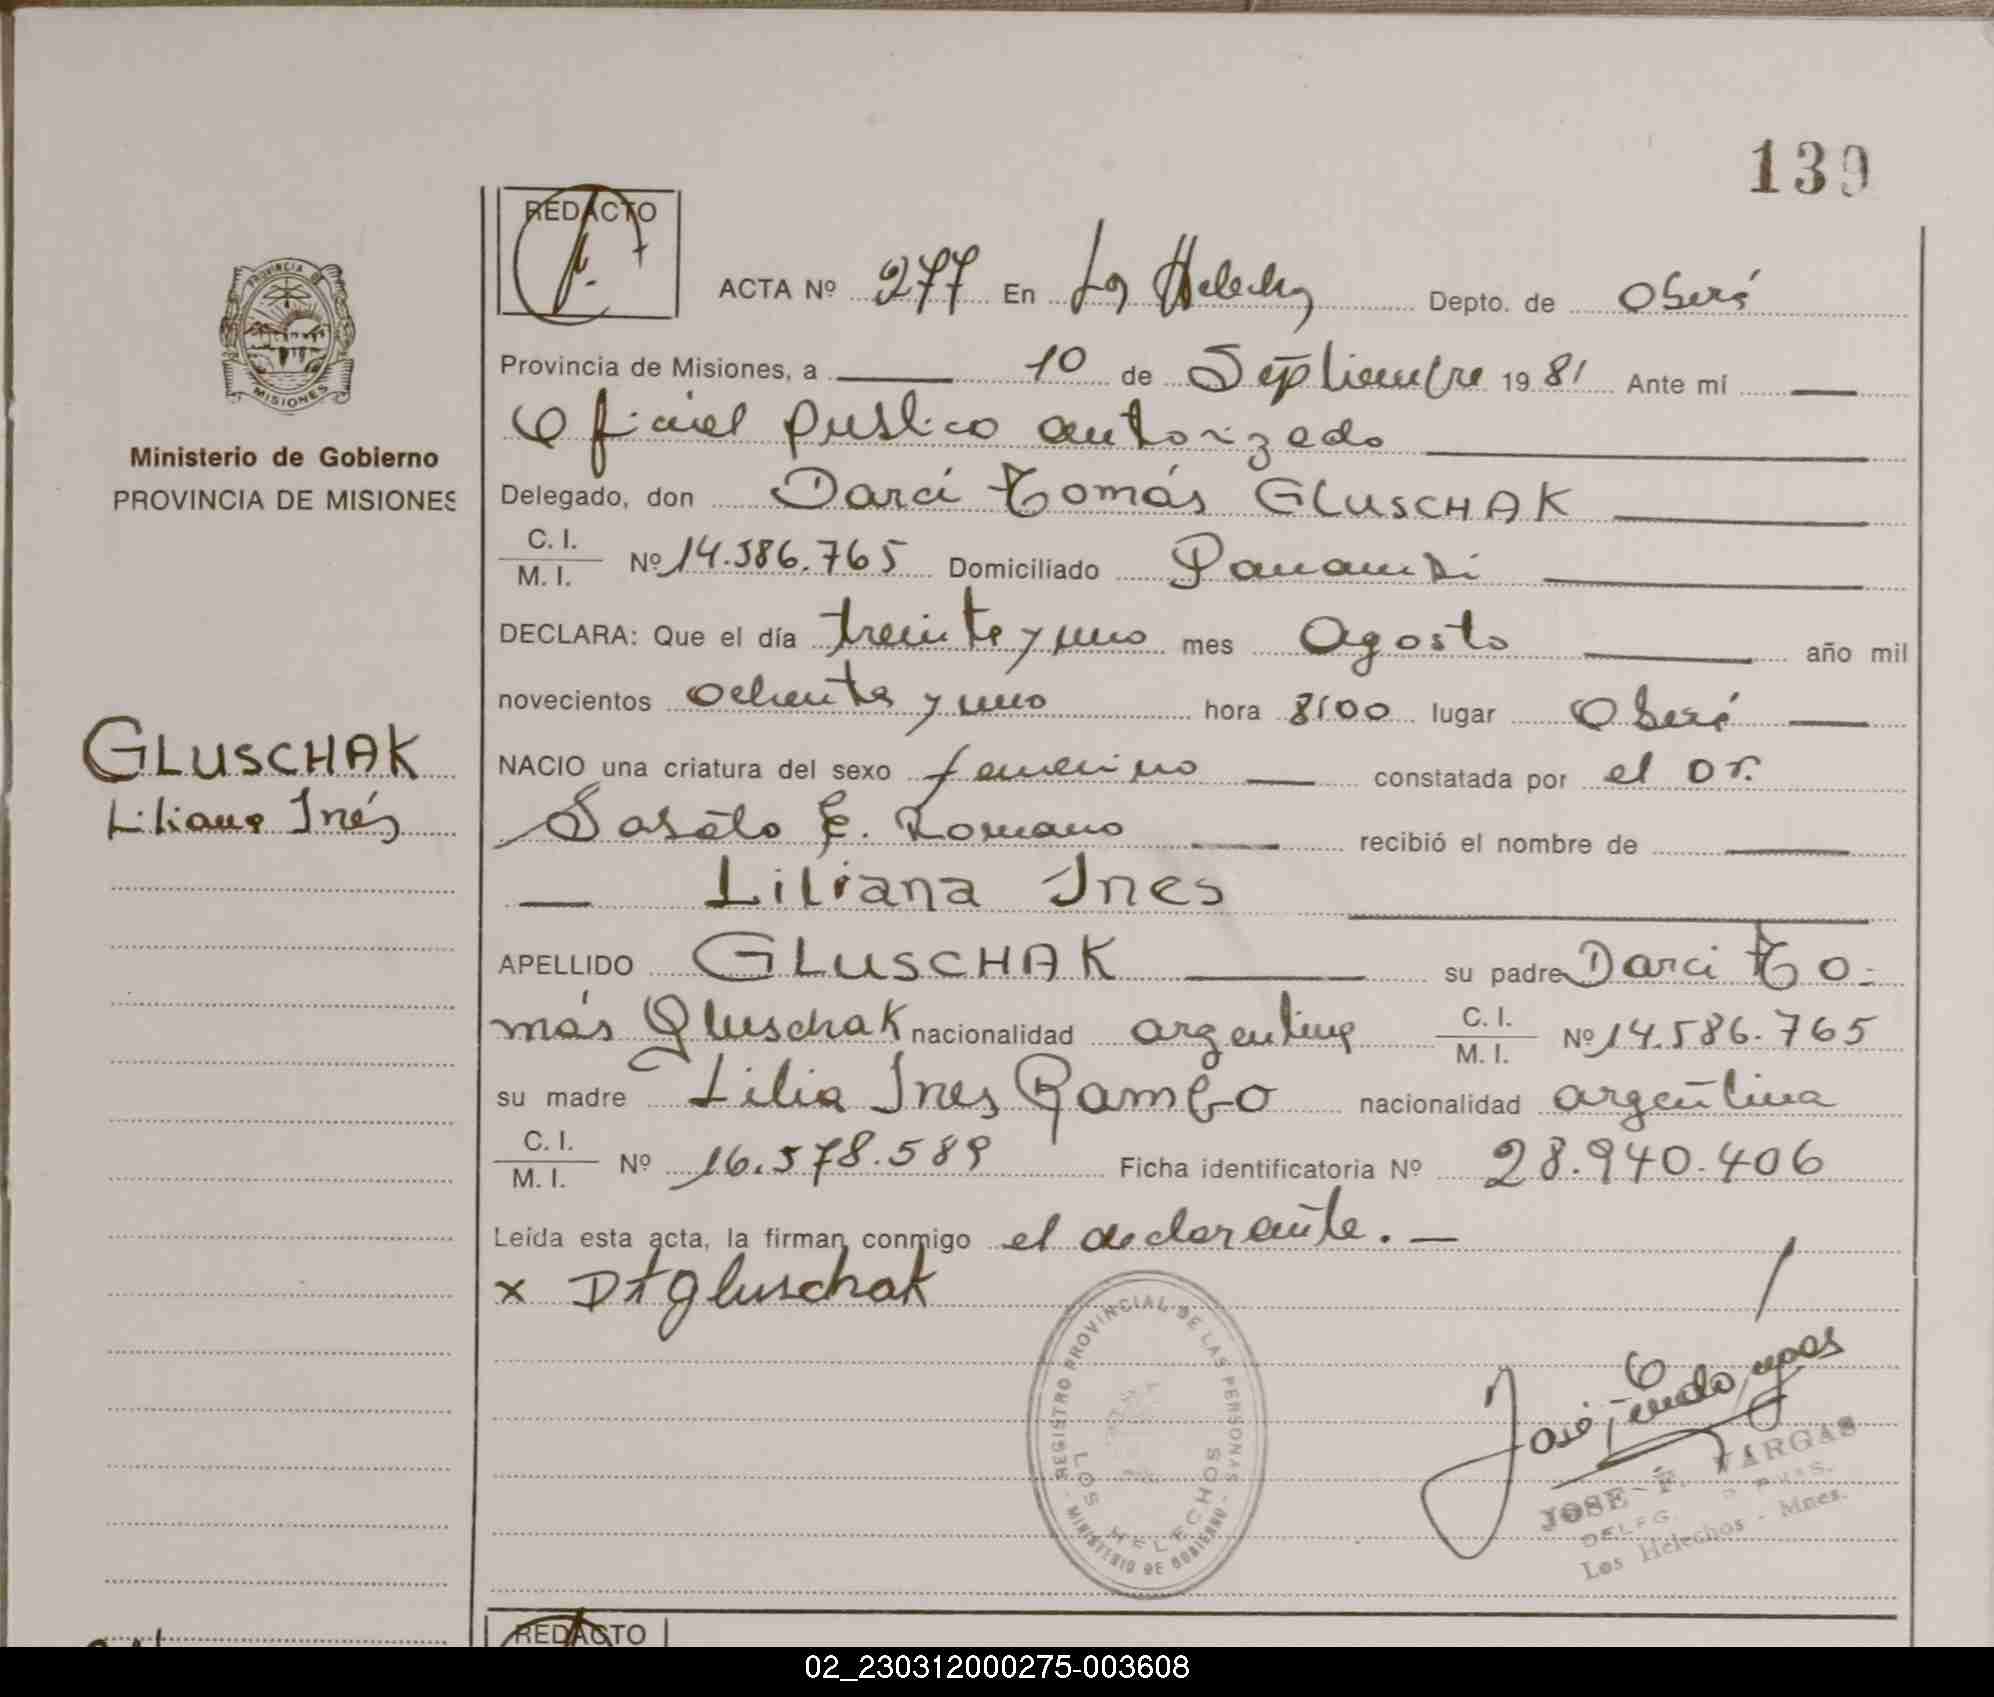 139
REDACTO
ACTA Nº 277 En Los Helechos Depto. de Oberá
PROVINCIA DE
MISIONES
Provincia de Misiones, a 10 de Septiembre 1981 Ante mí
Oficial público autorizado
Ministerio de Gobierno
PROVINCIA DE MISIONES
Delegado, don Darci Tomás GLUSCHAK
C. I.
M. I. Nº 14.586.765 Domiciliado Panambí
DECLARA: Que el día treinta y uno mes Agosto año mil
novecientos ochenta y uno hora 8:00 lugar Oberá
GLUSCHAK
Liliana Inés
NACIO una criatura del sexo femenino constatada por el Dr.
E. Romano recibió el nombre de
Liliana Ines
APELLIDO GLUSCHAK su padre Darci To-
más Gluschak nacionalidad argentina C. I.
M. I. Nº 14.586.765
su madre Lilia Ines Rambo nacionalidad argentina
C. I.
M. I. Nº 16.578.589 Ficha identificatoria Nº 28.940.406
Leída esta acta, la firman conmigo el declarante.
x DTGluschak
REGISTRO PROVINCIAL DE LAS PERSONAS
LOS HELECHOS
MINISTERIO DE GOBIERNO
JOSE F. VARGAS
DELEG.
Los Helechos - Mnes.
REDACTO
02_230312000275-003608